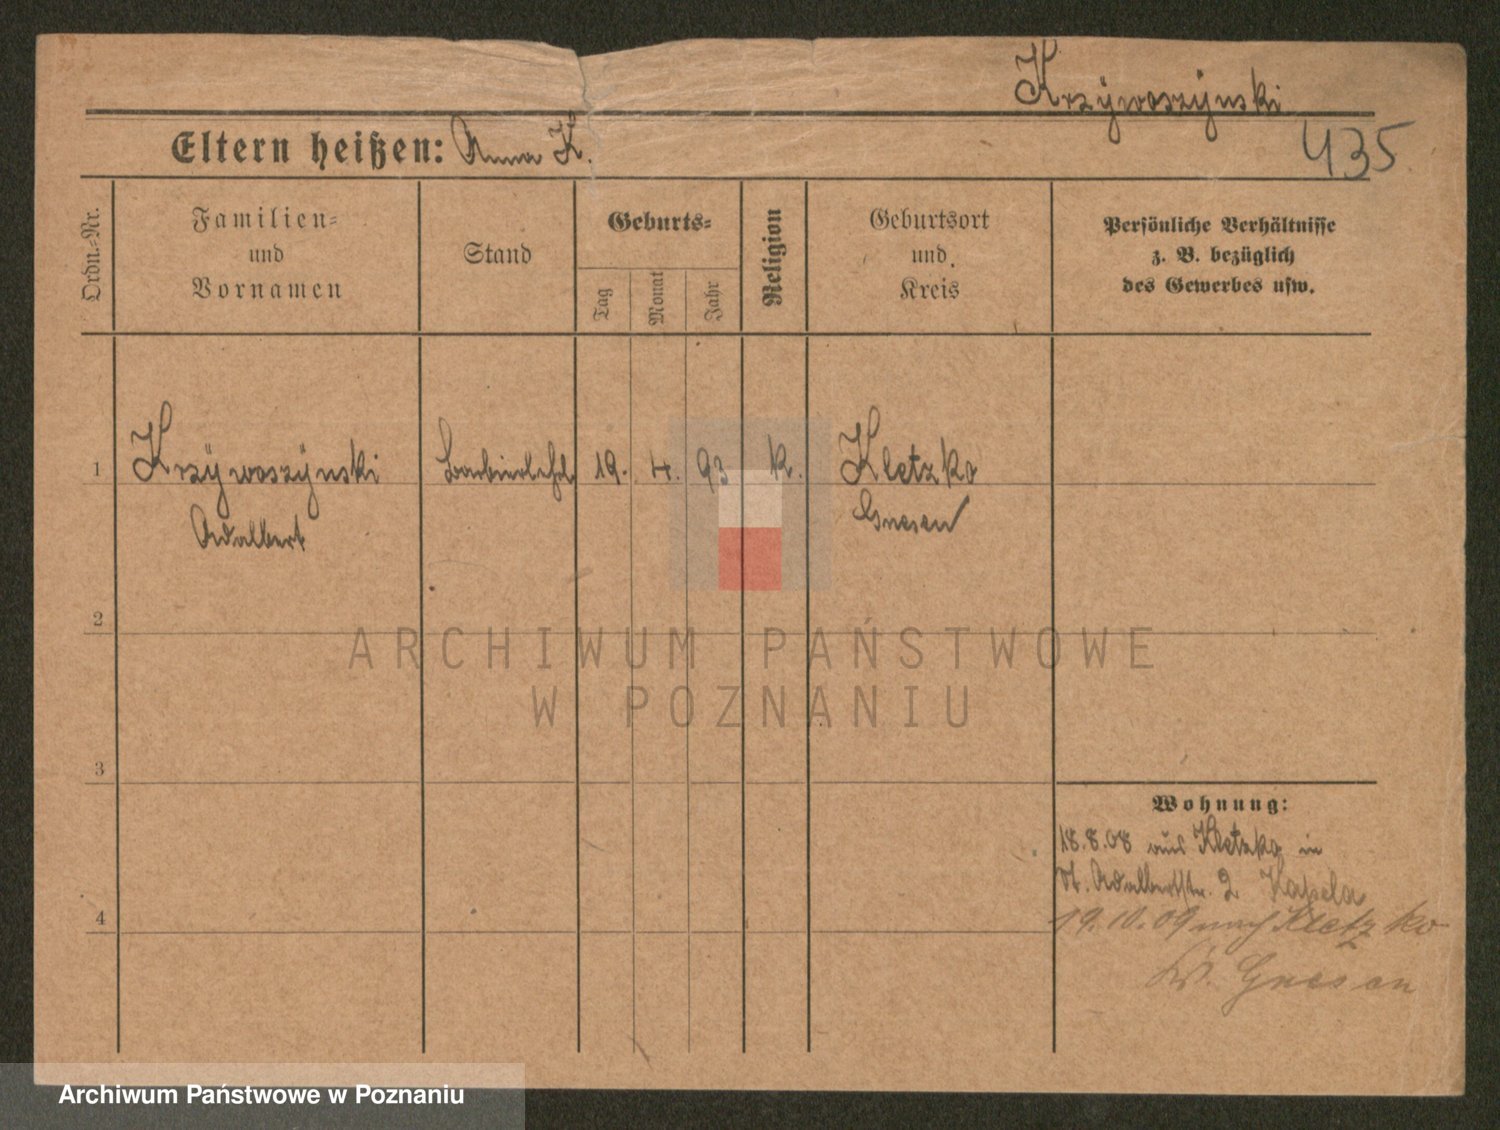 Krzÿwoszÿnski
435
Eltern heißen: Anna K.
Ordn.=Nr.
Familien=
und
Vornamen
Stand
Geburts=
Tag
Monat
Jahr
Religion
Geburtsort
und
Kreis
Persönliche Verhältnisse
z. B. bezüglich
des Gewerbes usw.
1 Krzÿwoszÿnski Barbierlehrl. 19. 4. 93 k. Kletzko
Adalbert Gnesen
2
3
4
Wohnung:
18.8.08 aus Kletzko in
St. Adalbertstr. 2
19.10.09 nach Kletzko
Kr. Gnesen
ARCHIWUM PAŃSTWOWE
W POZNANIU
Archiwum Państwowe w Poznaniu